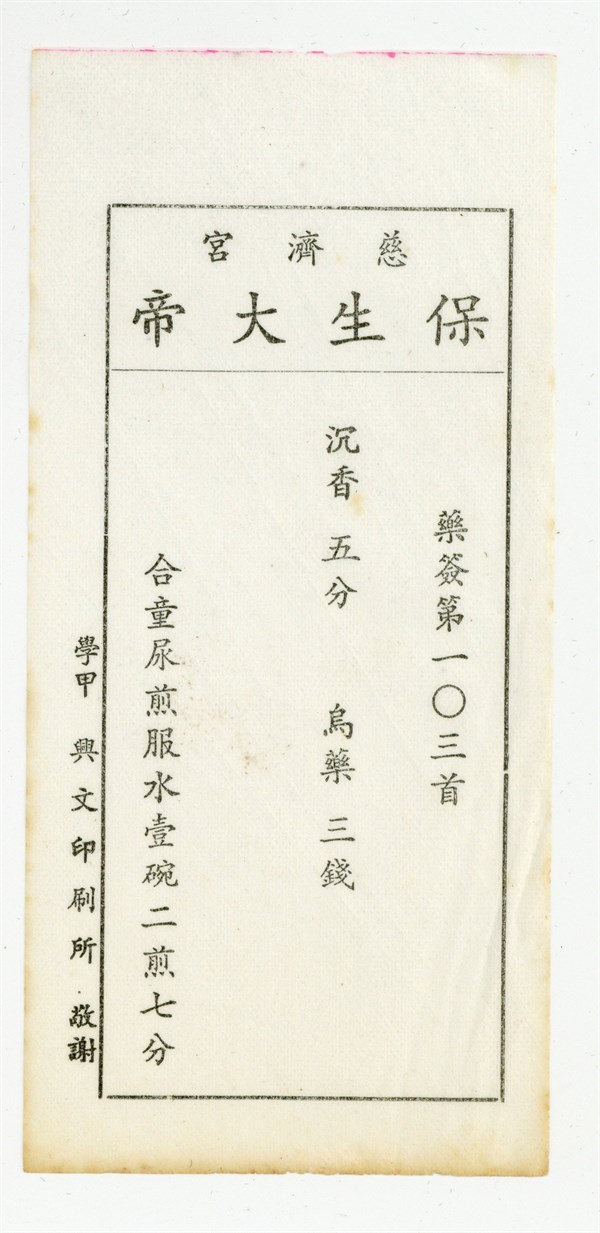 慈濟宮
保生大帝
藥簽第一〇三首
沉香 五分 烏藥 三錢
合童尿煎服水壹碗二煎七分
學甲 興文印刷所 敬謝